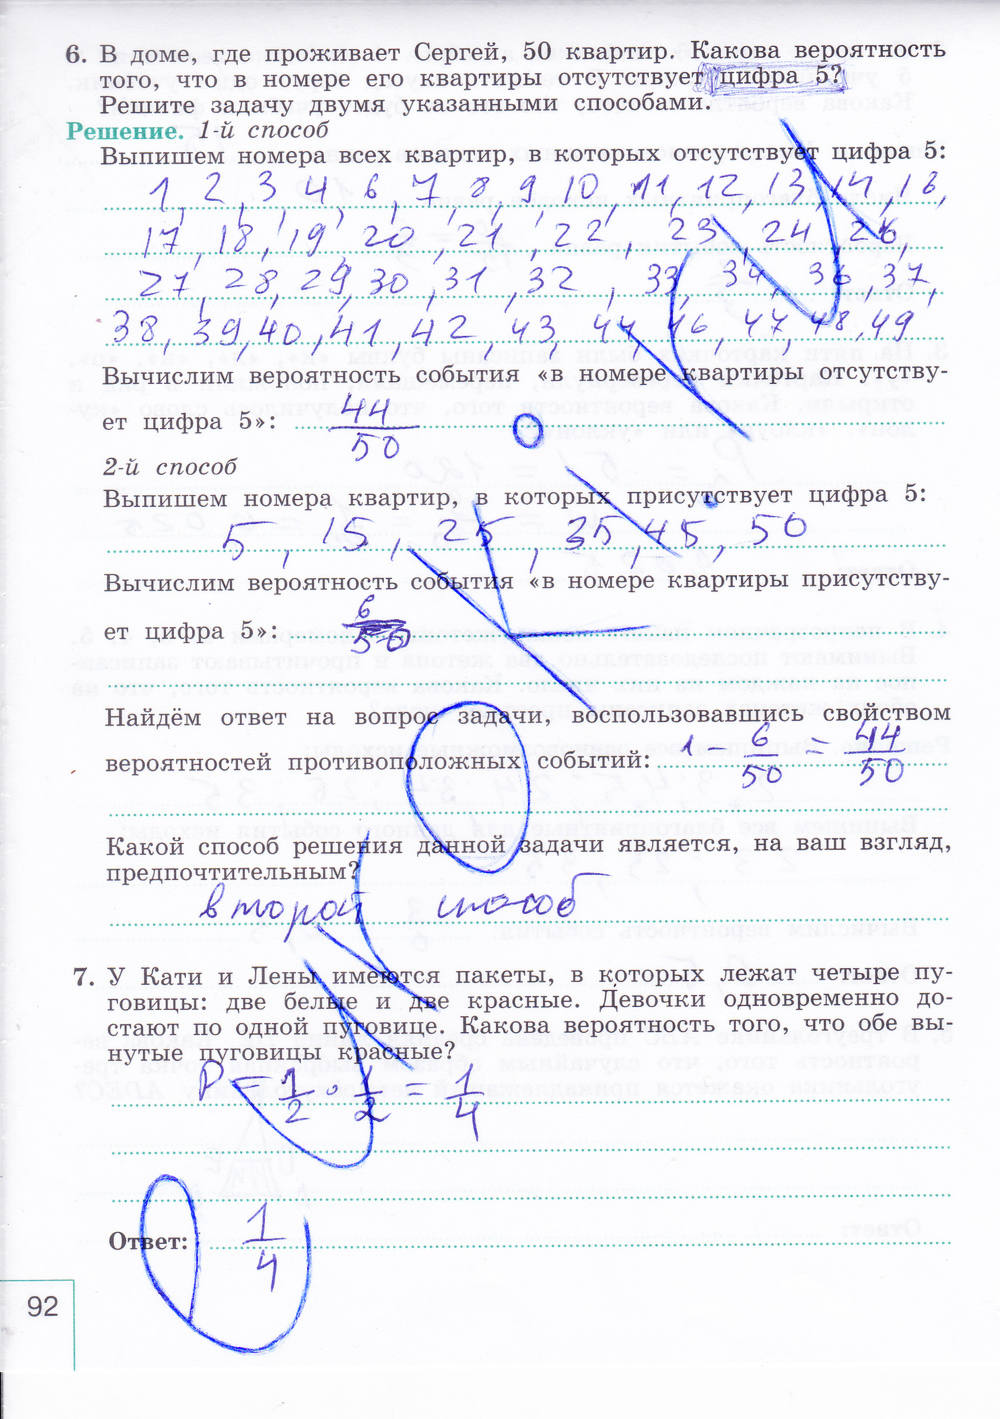 6. В доме, где проживает Сергей, 50 квартир. Какова вероятность
того, что в номере его квартиры отсутствует цифра 5?
Решите задачу двумя указанными способами.
Решение. 1-й способ
Выпишем номера всех квартир, в которых отсутствует цифра 5:
1, 2, 3, 4, 6, 7, 8, 9, 10, 11, 12, 13, 14, 16,
17, 18, 19, 20, 21, 22, 23, 24, 26,
27, 28, 29, 30, 31, 32, 33, 34, 36, 37,
38, 39, 40, 41, 42, 43, 44, 46, 47, 48, 49
Вычислим вероятность события «в номере квартиры отсутству-
ет цифра 5»: 44/50
2-й способ
Выпишем номера квартир, в которых присутствует цифра 5:
5, 15, 25, 35, 45, 50
Вычислим вероятность события «в номере квартиры присутству-
ет цифра 5»: 6/50
Найдём ответ на вопрос задачи, воспользовавшись свойством
вероятностей противоположных событий: 1 - 6/50 = 44/50
Какой способ решения данной задачи является, на ваш взгляд,
предпочтительным?
второй способ
7. У Кати и Лены имеются пакеты, в которых лежат четыре пу-
говицы: две белые и две красные. Девочки одновременно до-
стают по одной пуговице. Какова вероятность того, что обе вы-
нутые пуговицы красные?
P = 1/2 · 1/2 = 1/4
Ответ: 1/4
92